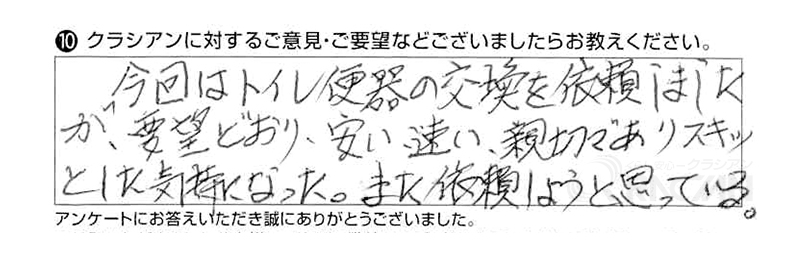 ⑩ クラシアンに対するご意見・ご要望などございましたらお教えください。
今回はトイレ便器の交換を依頼しました
が、要望どおり、安い、速い、親切でありスキッ
とした気持になった。また依頼しようと思っている。
アンケートにお答えいただき誠にありがとうございました。